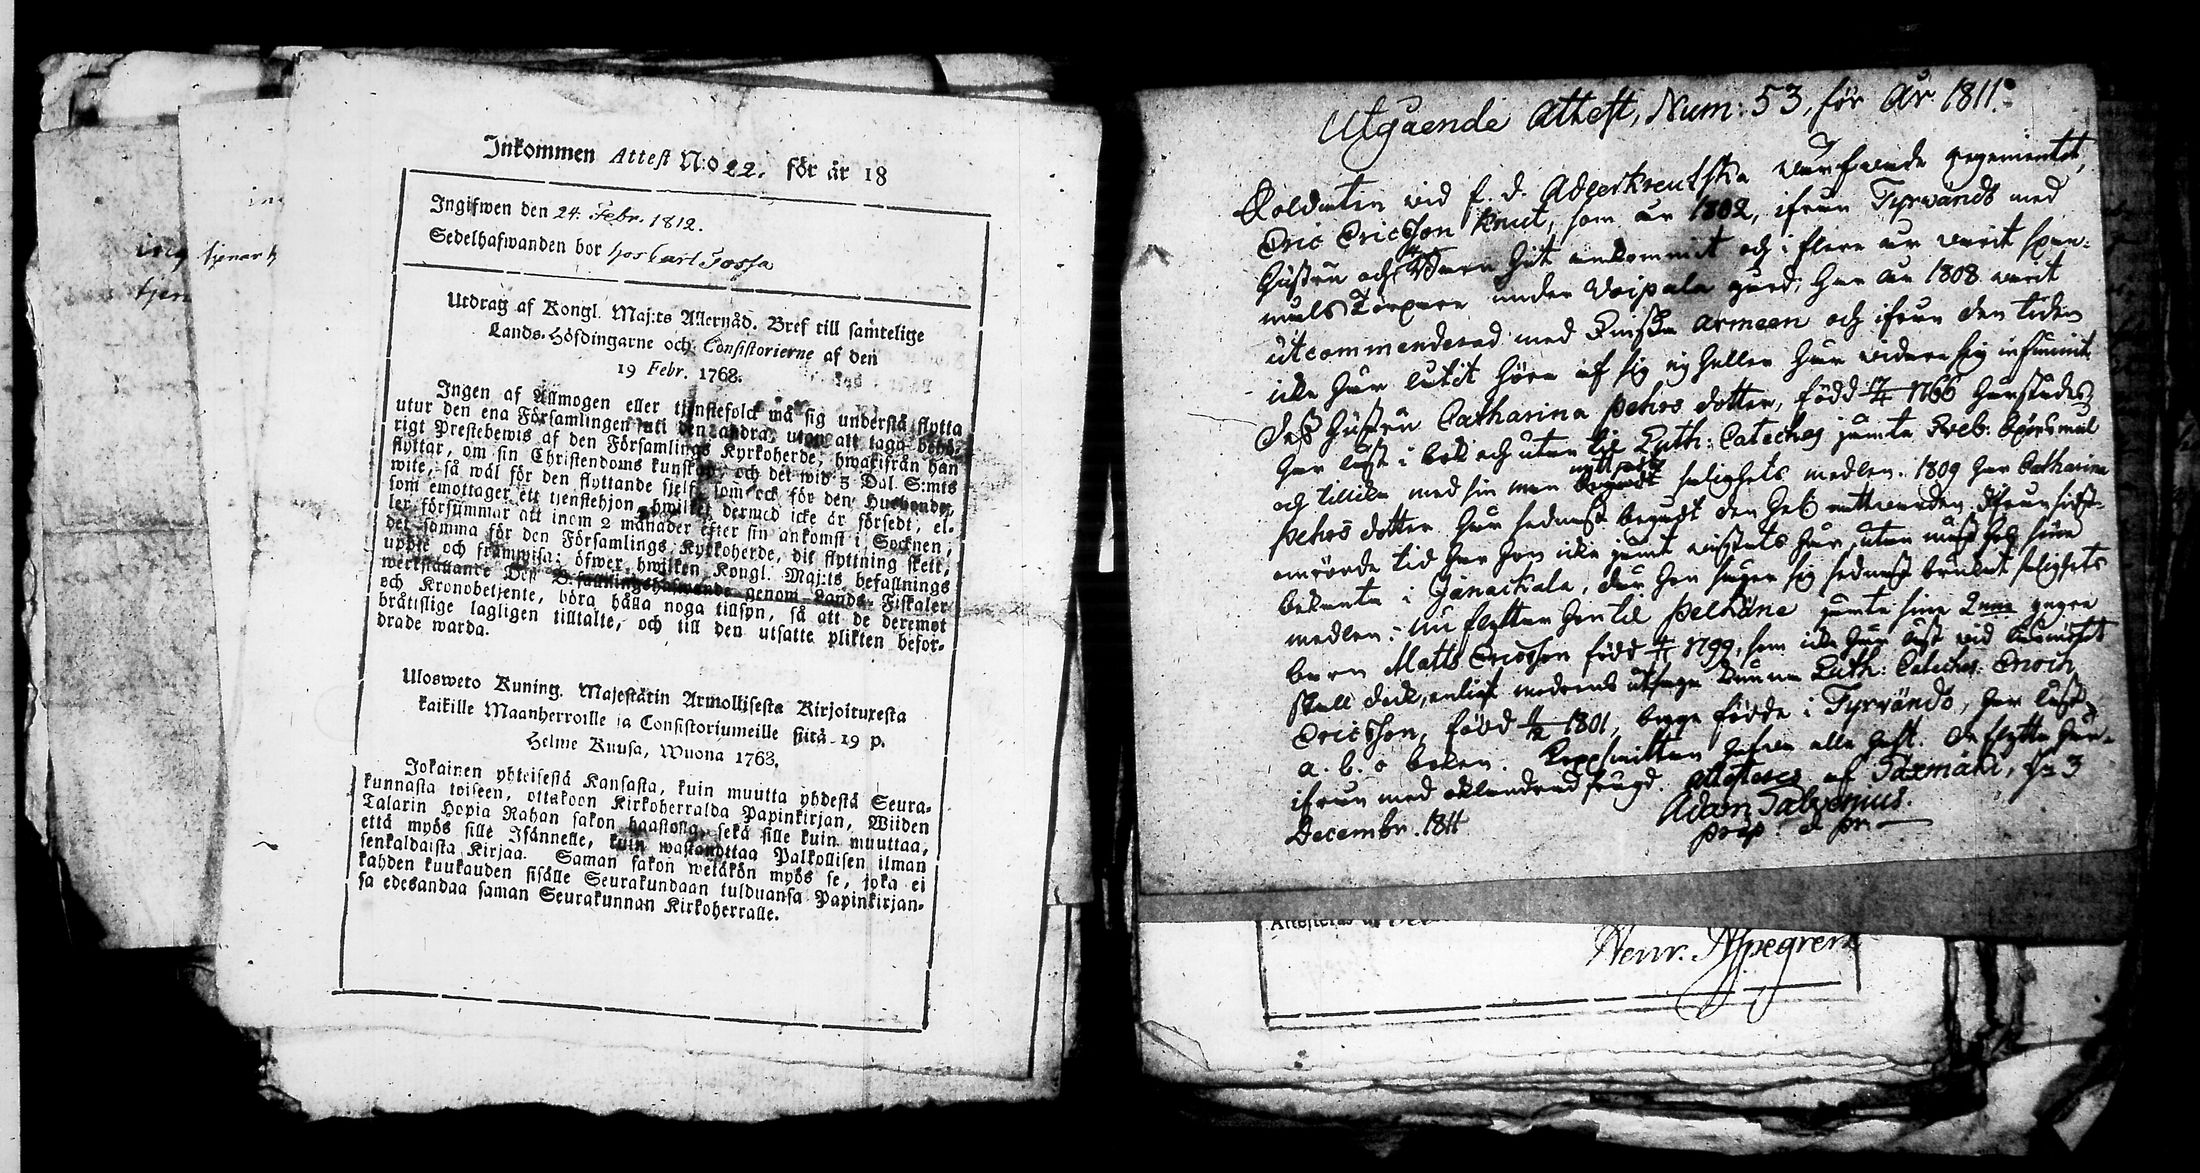 Inkommen Attest N:o 22. för år 18
Ingifwen den 24. Febr. 1812.
Sedelhafwanden bor hos Carl Tossa
Utdrag af Kongl. Maj:ts Allernåd. Bref till samtelige
Lands-Höfdingarne och Consistorierne af den
19 Febr. 1768.
Ingen af Allmogen eller tjenstefolck må sig understå flytta
utur den ena Församlingen uti den andra, utan att taga behö-
rigt Prestebewis af den Församlings Kyrkoherde, hwarifrån han
flyttar, om sin Christendoms kunskap, och det wid 5 Dal. S:mts
wite, så wäl för den flyttande sjelf, som ock för den Husbonde,
som emottager ett tjenstehjon, hwilket dermed icke är försedt, el-
ler försummar att inom 2 månader efter sin ankomst i Socknen,
det samma för den Församlings Kyrkoherde, dit flyttning skett,
uppte och framwisa; öfwer hwilken Kongl. Maj:ts befallnings
werkställande Dess Befallningshafwande genom Lands-Fiskaler
och Kronobetjente, böra hålla noga tillsyn, så att de deremot
bråttslige lagligen tilltalte, och till den utsatte plikten befor-
drade warda.
Ulosweto Kuning. Majestätin Armollisesta Kirjoituxesta
kaikille Maanherroille ja Consistoriumeille siitä 19 p.
Helme Kuusa, Wuona 1763.
Jokainen yhteisestä Kansasta, kuin muutta yhdestä Seura-
kunnasta toiseen, ottakoon Kirkoherralda Papinkirjan, Wiiden
Talarin Hopia Rahan sakon haastolla, sekä sille kuin muuttaa,
että myös sille Isännelle, kuin wastanottaa Palkollisen ilman
senkaldaista Kirjaa. Saman sakon wetäkön myös se, joka ei
kahden kuukauden sisälle Seurakundaan tulduansa Papinkirjan-
sa edesandaa saman Seurakunnan Kirkoherralle.
Utgående Attest, Num: 53, för År 1811.
Soldaten vid f. d. Adlerkreutzska värfvade regementet,
Eric Ericsson Knut, som år 1802, ifrån Tyrvändö med
hustru och barn hit ankommit och i flere år varit span-
måls Torpare under Voipala gård; har år 1808 varit
utcommenderad med Finska Armeen och ifrån den tiden
icke har låtit höra af sig ej heller har vidare sig infunnit.
Dess hustru Catharina Pehrs dotter, född 1766 härstädes,
har läst i bok och utan til Luth: Cateches jämte Sveb: Spörsmål
och tillika med sin man salighets medlen. 1809 har Catharina
Pehrs dotter här sednast begådt den Hel. nattvarden. Ifrån sist-
omrörde tid har hon icke jämt vistats här, utan mäst hos sina
bekanta i Janackala, der hon säger sig sednast brukat salighets
medlen. Nu flyttar hon til Pelkäne jämte sina 2:ne yngre
barn Matts Ericsson född 1799, som icke har läst vid
skall dock, enligt modrens utsago kunna Luth: Cateches. Enoch
Ericsson, född 1801, begge födde i Tyrvändö, har läst
a. b. c boken. Koppsmittan hafva alla haft. De flytta här-
ifrån med oklandrad frägd. Attesteres af Saxmäki, d. 3
Decembr. 1811
Adam Salvenius.
Henr. Alpegren